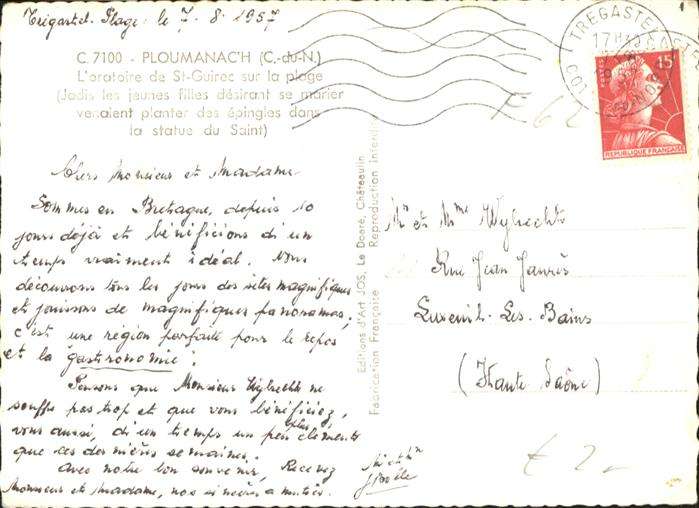 Trégastel-Plage. le 7-8-1957
C. 7100 - PLOUMANAC'H (C.-du-N.)
L'oratoire de St-Guirec sur la plage
(Jadis les jeunes filles désirant se marier
venaient planter des épingles dans
la statue du Saint)
Chers Monsieur et Madame
Sommes en Bretagne, depuis 10
jours déjà et bénéficions d'un
temps vraiment idéal. Nous
découvrons tous les jours des sites magnifiques
et jouissons de magnifiques panoramas,
c'est une région parfaite pour le repos
et la gastronomie !
Pensons que Monsieur Wybrecht ne
souffre pas trop et que vous bénéficiez,
vous aussi, d'un temps un peu plus clément
que ces dernières semaines.
Avec notre bon souvenir, Recevez
Monsieur et Madame, nos sincères amitiés.
Editions d'Art JOS, Le Doaré, Châteaulin
Fabrication Française - Reproduction Interdite
TREGASTEL
17H
15
REPUBLIQUE FRANÇAISE
F 62
Mr et Mme Wybrecht
Rue Jean Jaurès
Luxeuil-Les-Bains
(Haute Saône)
€ 2-